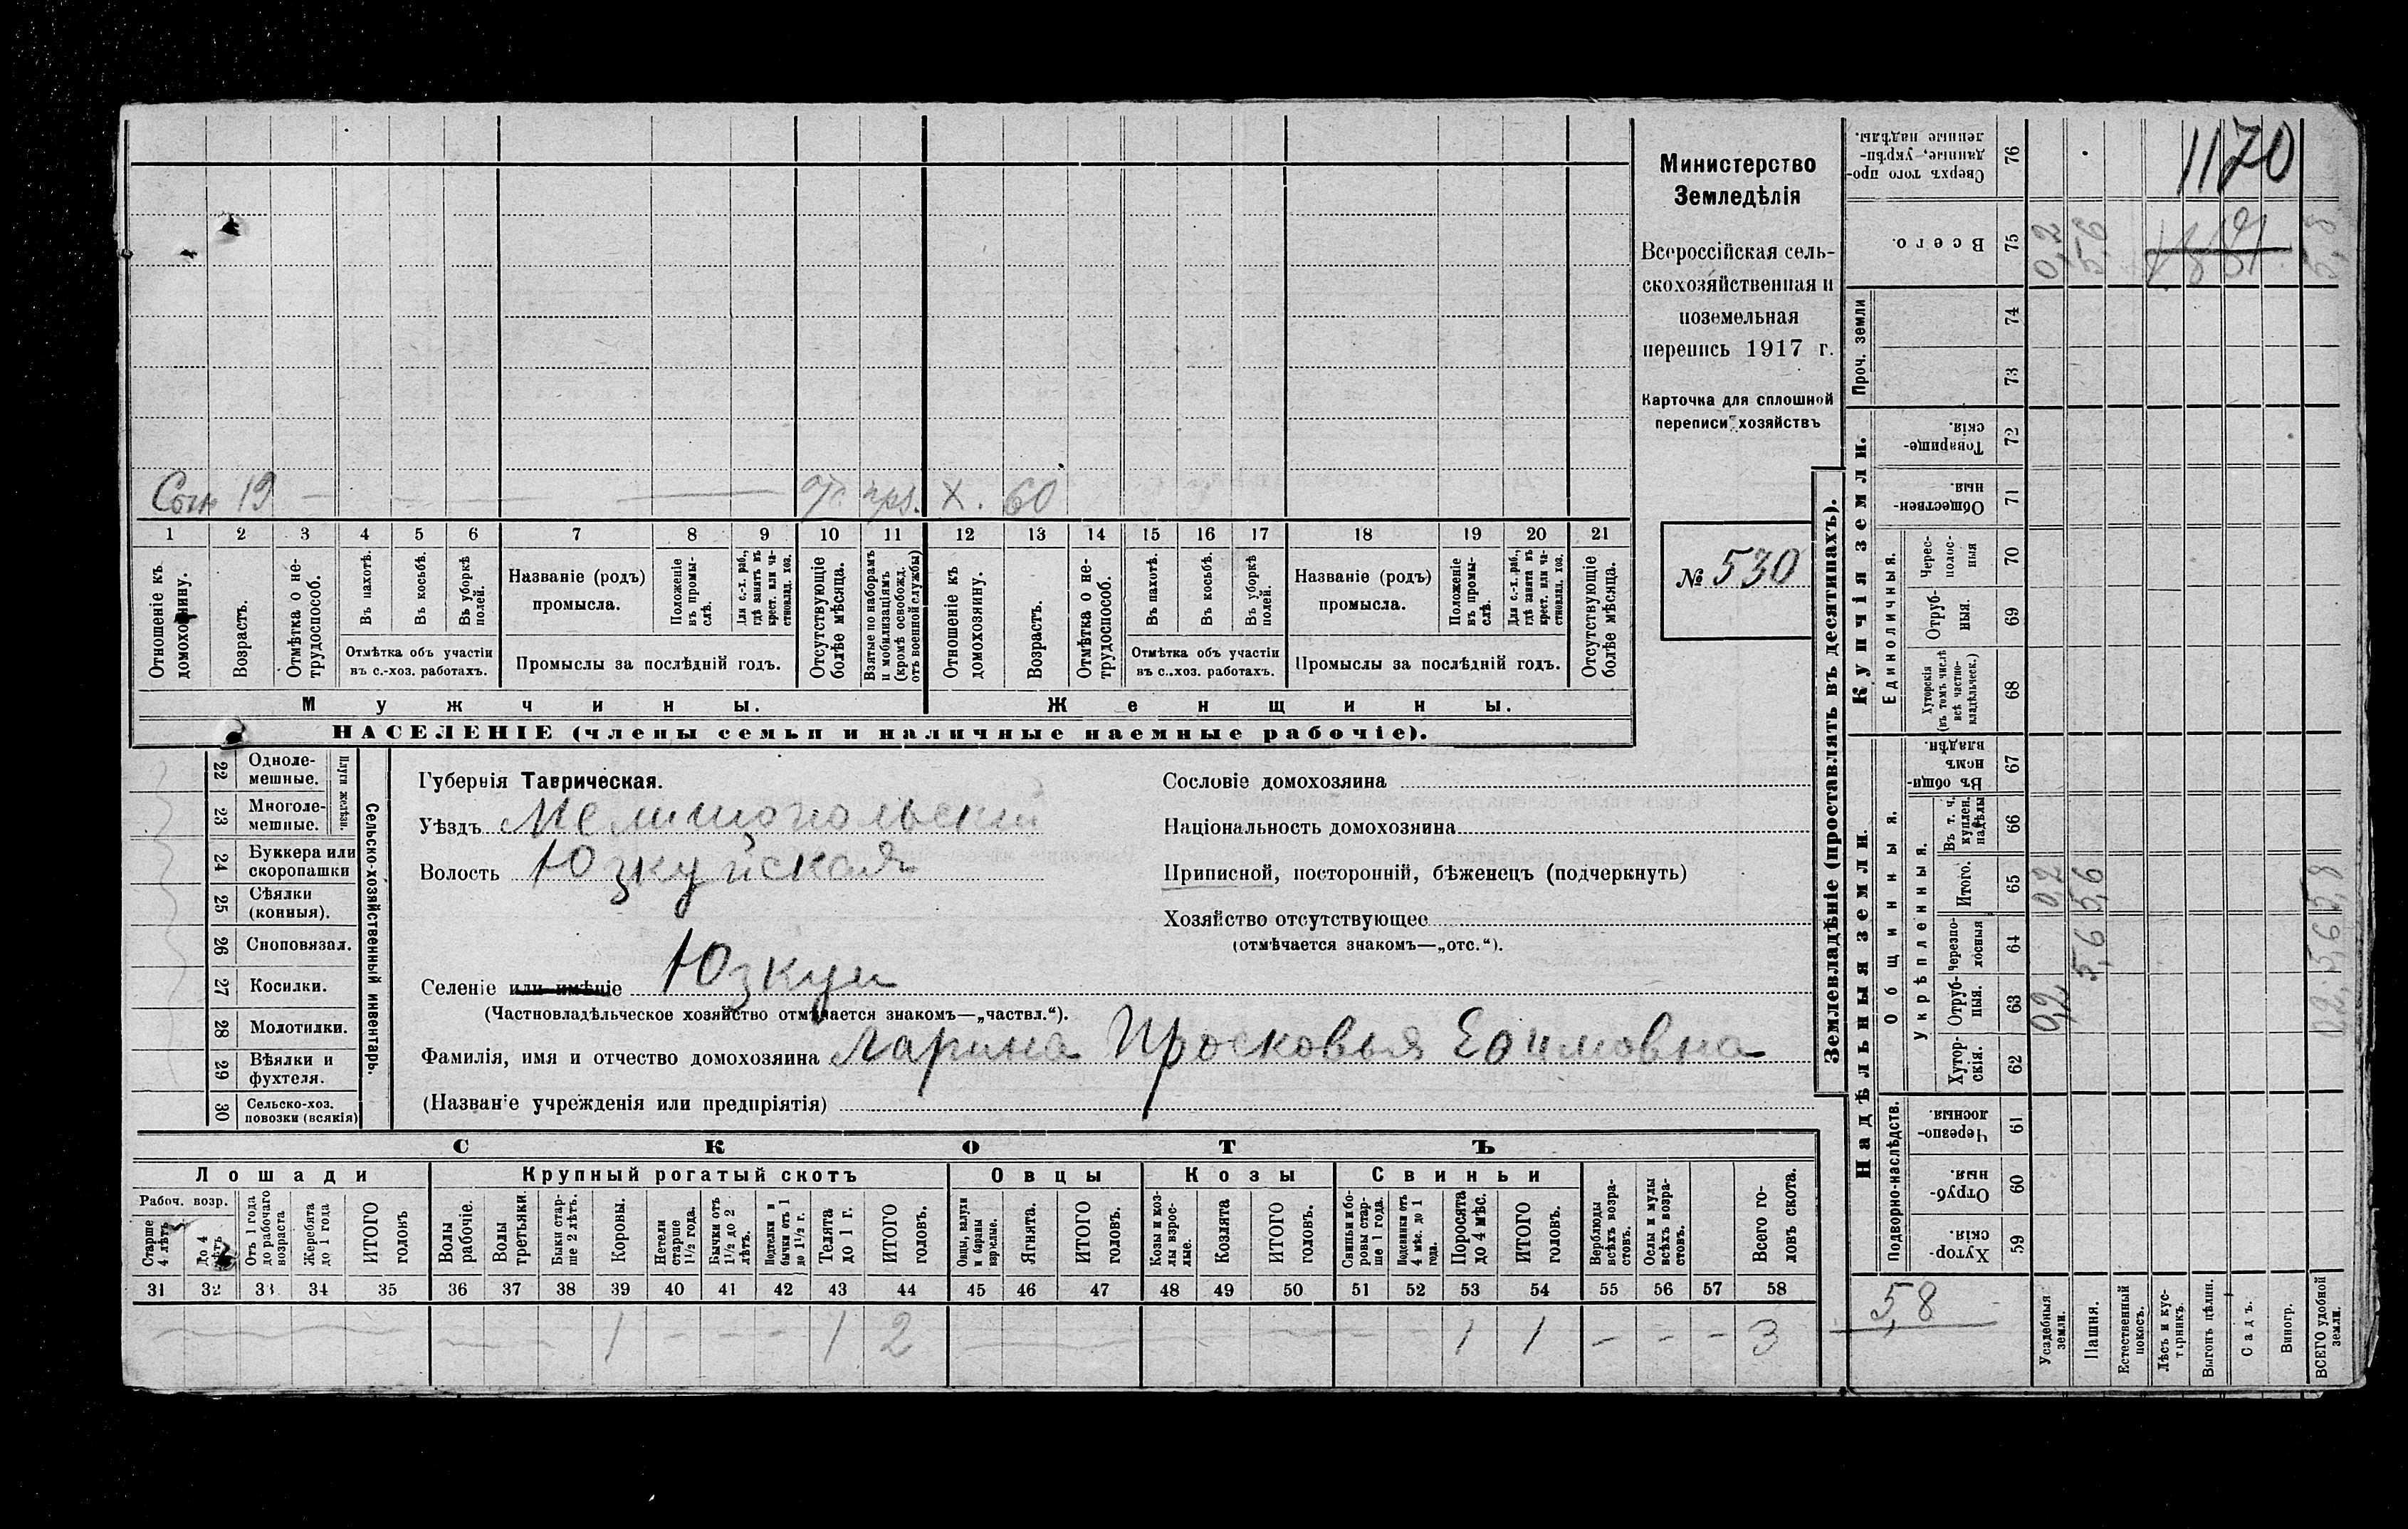 Сынъ 19 — — — — — — отс. прз. Х. 60
1 2 3 4 5 6 7 8 9 10 11 12 13 14 15 16 17 18 19 20 21
Отношеніе къ домохозяину.
Возрастъ.
Отмѣтка о не-трудоспособ.
Въ пахотѣ.
Въ косьбѣ.
Въ уборкѣ полей.
Отмѣтка объ участіи
въ с.-хоз. работахъ.
Названіе (родъ)
промысла.
Положеніе въ промы-слѣ.
Для с.-х. раб., гдѣ занятъ въ крест. или ча-стновлад. хоз.
Промыслы за послѣдній годъ.
Отсутствующіе болѣе мѣсяца.
Взятые по наборамъ и мобилизаціямъ (кромѣ освобожд. отъ военной службы)
Отношеніе къ домохозяину.
Возрастъ.
Отмѣтка о не-трудоспособ.
Въ пахотѣ.
Въ косьбѣ.
Въ уборкѣ полей.
Отмѣтка объ участіи
въ с.-хоз. работахъ.
Названіе (родъ)
промысла.
Положеніе въ промы-слѣ.
Для с.-х. раб., гдѣ занята въ крест. или ча-стновлад. хоз.
Промыслы за послѣдній годъ.
Отсутствующіе болѣе мѣсяца.
Мужчины. Женщины.
НАСЕЛЕНІЕ (члены семьи и наличные наемные рабочіе).
Министерство
Земледѣлія
Всероссійская сель-
скохозяйственная и
поземельная
перепись 1917 г.
Карточка для сплошной
переписи хозяйствъ
№ 530
22 Одноле-
мешные.
23 Многоле-
мешные.
Плуги желѣзн.
24 Буккера или
скоропашки
25 Сѣялки
(конныя).
26 Сноповязал.
27 Косилки.
28 Молотилки.
29 Вѣялки и
фухтеля.
30 Сельско-хоз.
повозки (всякія)
Сельско-хозяйственный инвентарь.
Губернія Таврическая.
Уѣздъ Мелитопольскій
Волость Юзкуйская
Селеніе или имѣніе Юзкуи
(Частновладѣльческое хозяйство отмѣчается знакомъ—„частвл.“).
Фамилія, имя и отчество домохозяина Ларина Просковья Ефимовна
(Названіе учрежденія или предпріятія)
Сословіе домохозяина
Національность домохозяина
Приписной, посторонній, бѣженецъ (подчеркнуть)
Хозяйство отсутствующее
(отмѣчается знакомъ—„отс.“).
СКОТЪ
Лошади Крупный рогатый скотъ Овцы Козы Свиньи
Рабоч. возр.
Старше 4 лѣтъ
До 4 лѣтъ
Отъ 1 года до рабочаго возраста
Жеребята до 1 года
ИТОГО головъ
Волы рабочіе.
Волы третьяки.
Быки стар-ше 2 лѣтъ.
Коровы.
Нетели старше 1½ года.
Бычки отъ 1½ до 2 лѣтъ.
Подтелки и бычки отъ 1 до 1½ г.
Телята до 1 г.
ИТОГО головъ.
Овцы, валухи и бараны взрослые.
Ягнята.
ИТОГО головъ.
Козы и коз-лы взрос-лые.
Козлята
ИТОГО головъ.
Свиньи и бо-ровы стар-ше 1 года.
Подсвинки отъ 4 мѣс. до 1 года.
Поросята до 4 мѣс.
ИТОГО головъ.
Верблюды всѣхъ возра-стовъ.
Ослы и мулы всѣхъ возра-стовъ.
Всего го-ловъ скота.
31 32 33 34 35 36 37 38 39 40 41 42 43 44 45 46 47 48 49 50 51 52 53 54 55 56 57 58
1 - - - 1 2 1 1 - - - 3
Землевладѣніе (проставлять въ десятинахъ).
1170
Сверхъ того про-данные, укрѣп-ленные надѣлы. 76
Всего. 75 0,2 5,6 5,8
Проч. земли 74 73
Купчія земли.
Товарище-скія. 72
Обществен-ныя. 71
Единоличныя.
Черес-полос-ныя 70
Отруб-ныя. 69
Хуторскія (въ томъ числѣ всѣ частно-владѣльческ.) 68
Надѣльныя земли.
Общинныя.
Въ общи-номъ владѣн. 67
Укрѣпленныя.
Въ т. ч. куплен. надѣлы 66
Итого. 65 0,2 5,6 5,8
Черезпо-лосныя 64 5,6 5,6
Отруб-ныя. 63 0,2 0,2
Хутор-скія. 62
Подворно-наслѣдств.
Черезпо-лосныя. 61
Отруб-ныя. 60
Хутор-скія. 59
5,8
Усадебныя земли.
Пашня.
Естественный покосъ.
Лѣсъ и кус-тарникъ.
Выгонъ цѣлин.
Садъ.
Виногр.
ВСЕГО удобной земли.